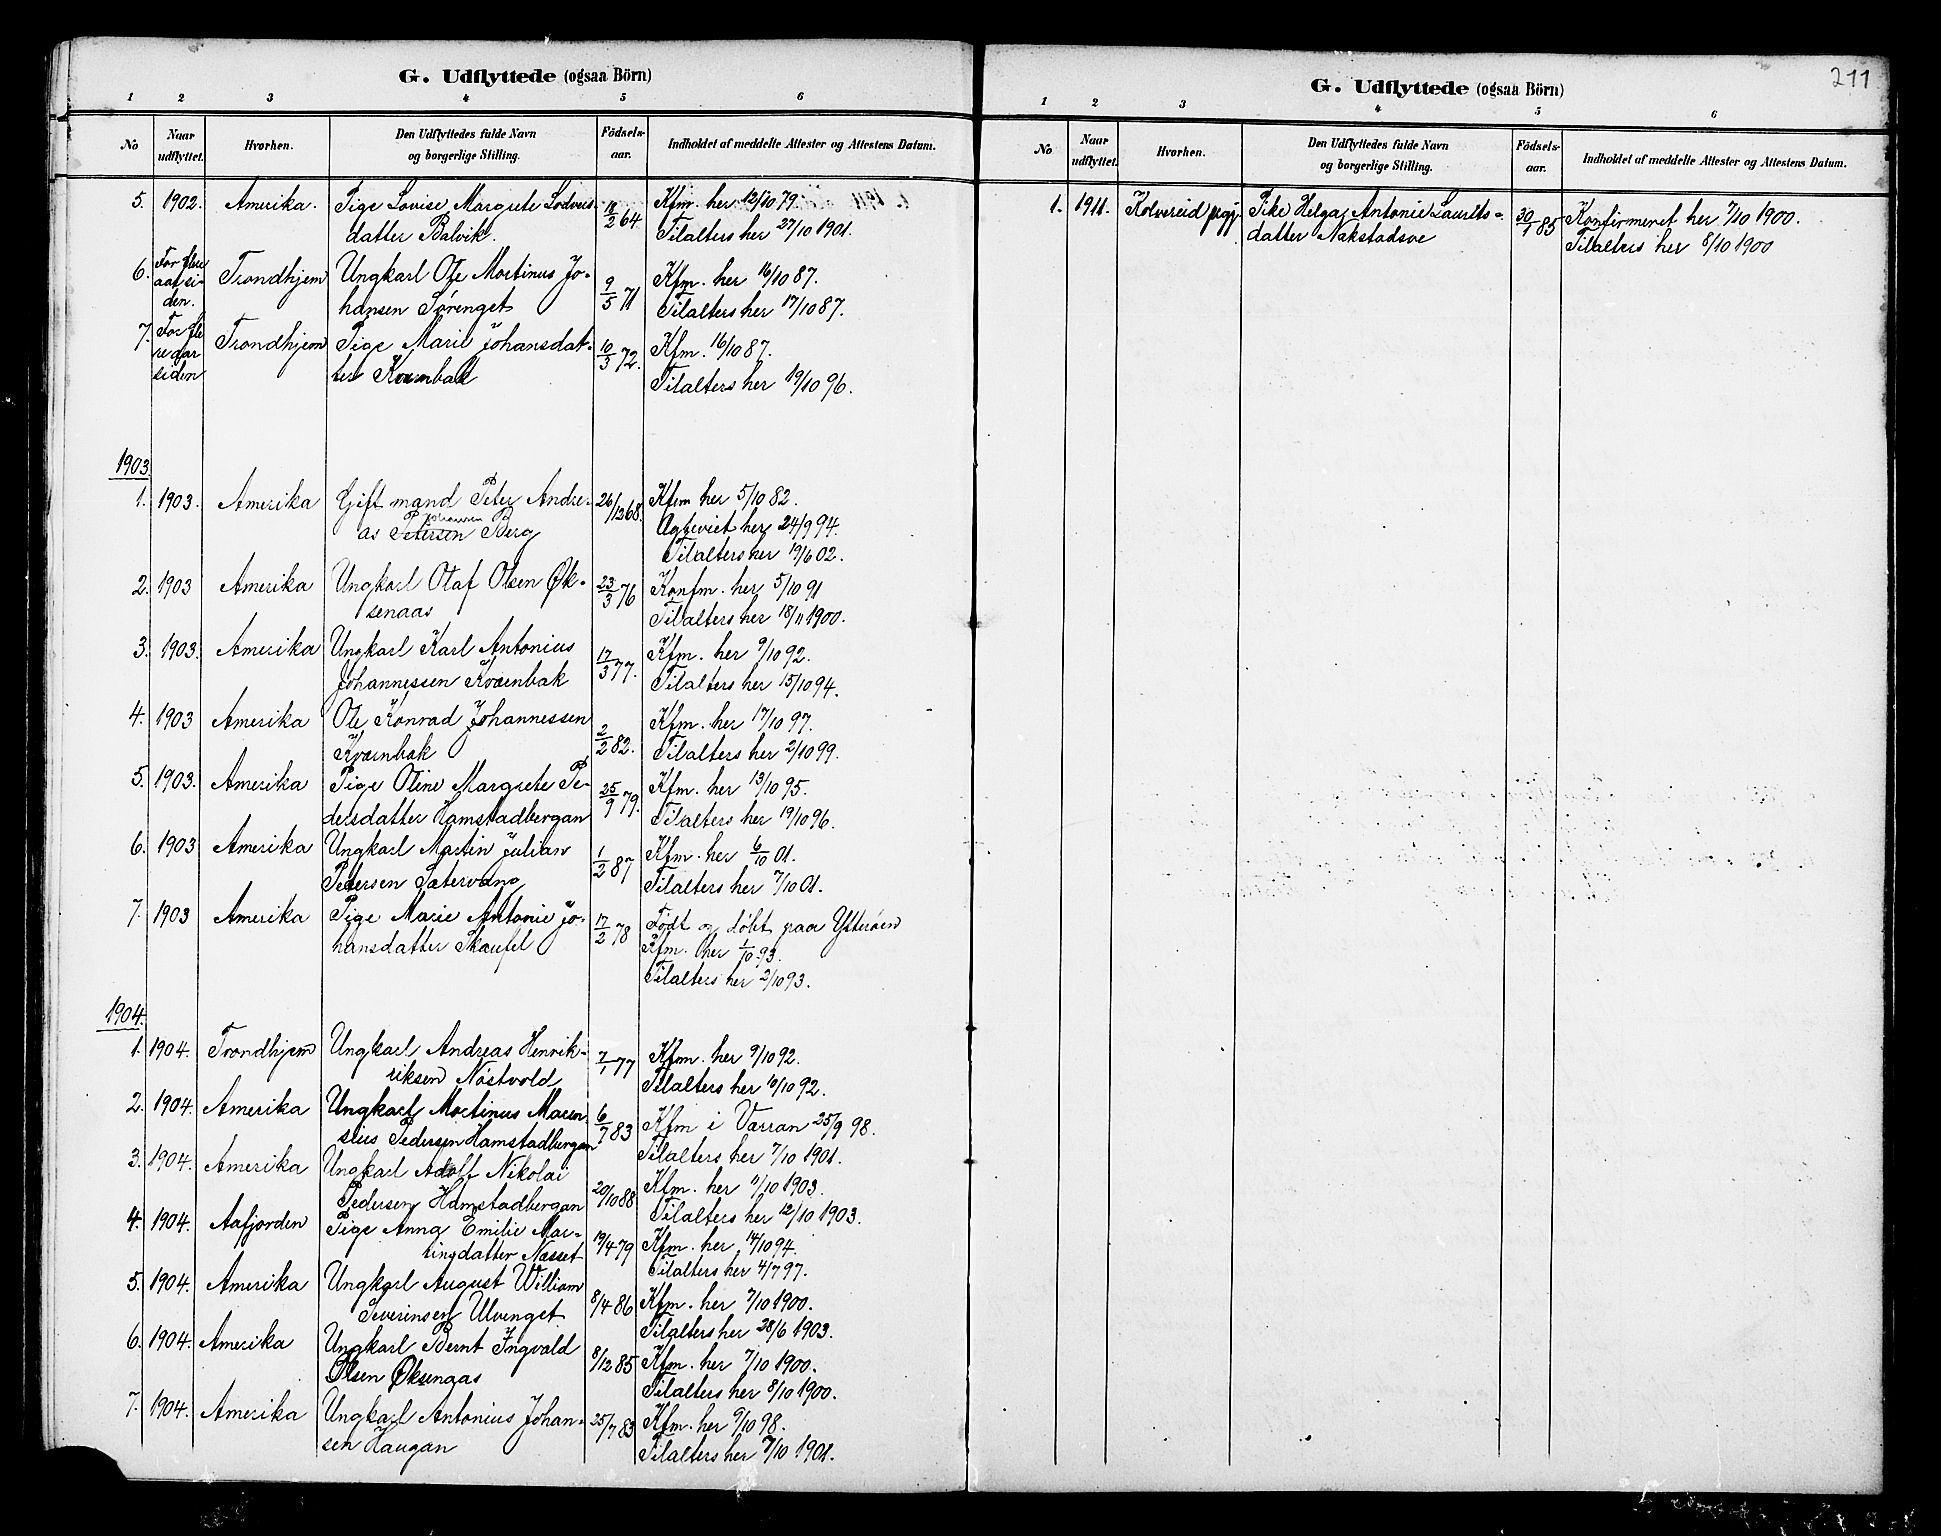 G. Udflyttede (ogsaa Börn)
1 2 3 4 5 6
No Naar udflyttet. Hvorhen. Den Udflyttedes fulde Navn og borgerlige Stilling. Födselsaar. Indholdet af meddelte Attester og Attestens Datum.
5. 1902. Amerika. Pige Lovise Margrete 64 Kfm. her 12/10 79.
datter Balvik. Tilalters her 27/10 1901.
6. For flere Trondhjem Ungkarl Ole Mortinus Jo- 9/5 71 Kfm. her 16/10 87.
aar si- hansen Sørenget Tilalters her 17/10 87.
den.
7. For fle Trondhjem Pige Marie Johansdat- 10/3 72. Kfm. 16/10 87.
re aar ter Kvernbak Tilalters her 19/10 96.
siden
1903.
1. 1903. Amerika Gift mand Peter Andre- 26/12 68. Kfm her 5/10 82.
Johansen
as Petersen Berg her 24/9 94.
Tilalters her 19/6 02.
2. 1903 Amerika Ungkarl Olaf Olsen Øk- 23/3 76 Konfm. her 5/10 91
senaas Tilalters her 18/11 1900.
3. 1903. Amerika Ungkarl Karl Antonius 17/3 77. Kfm. her 9/10 92.
Johannessen Kvernbak Tilalters her 15/10 94.
4. 1903 Amerika Ole Konrad Johannessen 2/2 82. Kfm. her 17/10 97.
Kvernbak Tilalters her 2/10 99.
5. 1903. Amerika Pige Oline Margrete Pe- 25/9 79. Kfm. her 13/10 95.
dersdatter Hamstadbergan Tilalters her 19/10 96.
6. 1903 Amerika Ungkarl Martin Julian 1/2 87 Kfm. her 6/10 01.
Petersen Sætervang Tilalters her 7/10 01.
7. 1903 Amerika Pige Marie Antonie Jo- 17/2 78 Født og døbt paa Ytterøen
hansdatter Skaufel Kfm. her 1/10 93.
Tilalters her 2/10 93.
1904.
1. 1904. Trondhjem Ungkarl Andreas Henrik- 7/1 77 Kfm. her 9/10 92.
riksen Nøstvold Tilalters her 10/10 92.
2. 1904. Amerika Ungkarl Mortinus 6/7 83 Kfm i Værran 25/9 98.
Pedersen Hamstadbergan Tilalters her 7/10 1901.
3. 1904. Amerika Ungkarl Adolf Nikolai 20/10 88 Kfm. her 11/10 1903.
Pedersen Hamstadbergan Tilalters her 12/10 1903.
4. 1904. Aafjorden Pige Anna Emilie Mar- 19/4 79 Kfm. her 14/10 94.
tinsdatter Næsset Tilalters her 4/7 97.
5. 1904. Amerika Ungkarl August William 8/4 86 Kfm. her 7/10 1900.
Severinsen Ulvenget. Tilalters her 28/6 1903.
6. 1904. Amerika Ungkarl Bernt Ingvald 8/12 85 Kfm. her 7/10 1900.
Olsen Øksengas Tilalters her 8/10 1900.
7. 1904. Amerika Ungkarl Antonius Johan- 25/7 83 Kfm. her 9/10 98.
sen Haugan Tilalters her 7/10 1901.
211
G. Udflyttede (ogsaa Börn)
1 2 3 4 5 6
No Naar udflyttet. Hvorhen. Den Udflyttedes fulde Navn og borgerlige Stilling. Födselsaar. Indholdet af meddelte Attester og Attestens Datum.
1. 1911. Kolvereid pgj. Pike Helga Antonie Laurits- 30/1 85 Konfirmeret her 7/10 1900.
datter Nakstadsve Tilalters her 8/10 1900